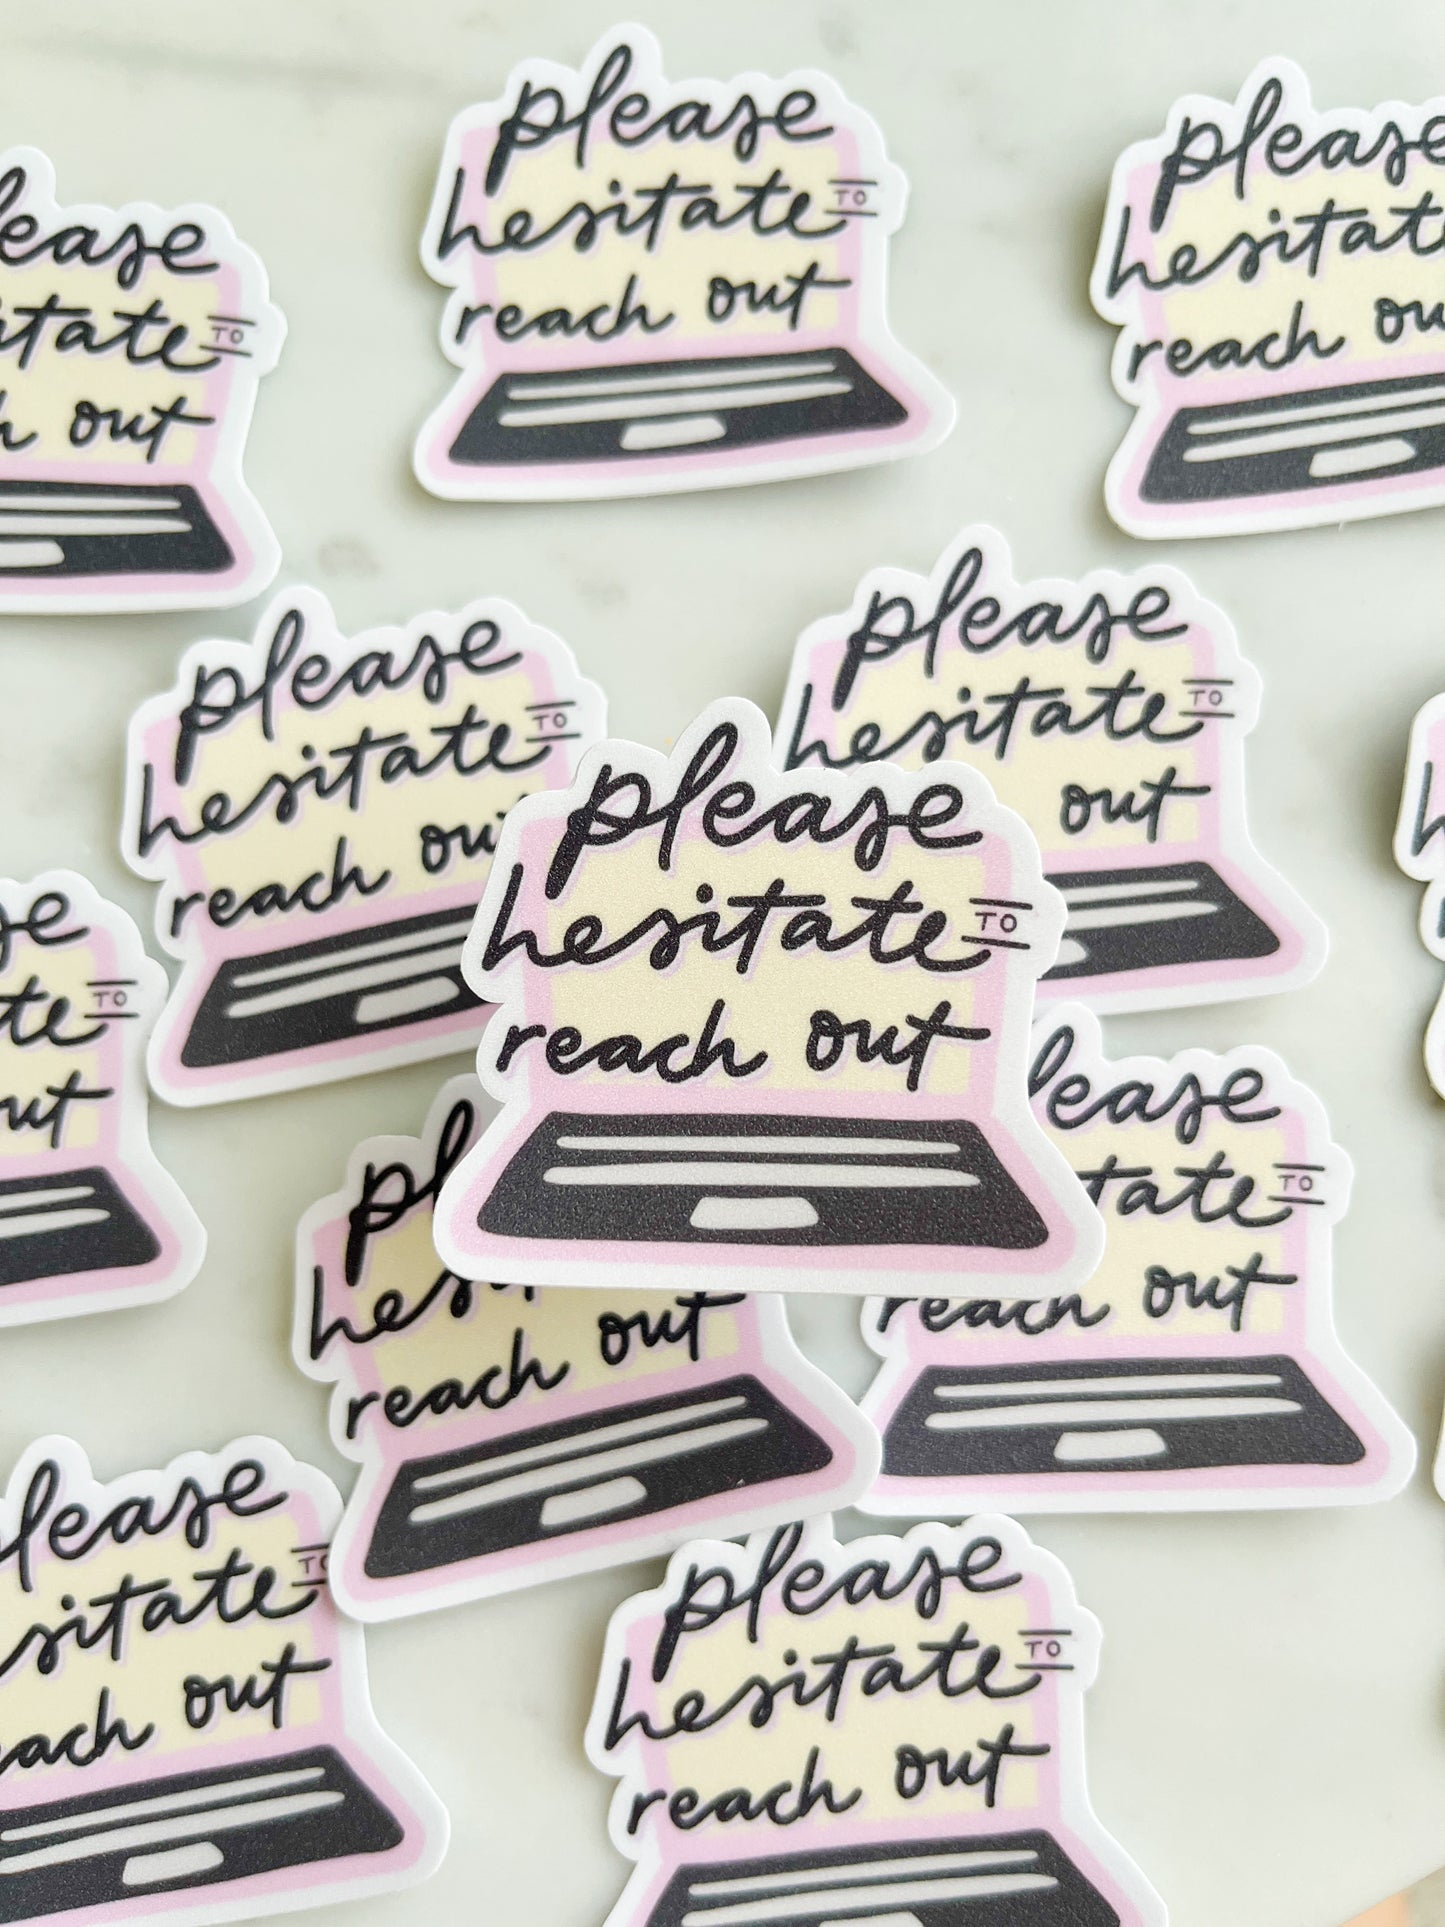 please
hesitate TO
reach out
please
hesitate
reach ou
ease
itate TO
h out
please
hesitate TO
reach out
please
hesitate TO
out
please
hesitate TO
reach out
se
te TO
ut
lease
tate TO
reach out
pl
hes
reach out
lease
sitate TO
each out
please
hesitate TO
reach out